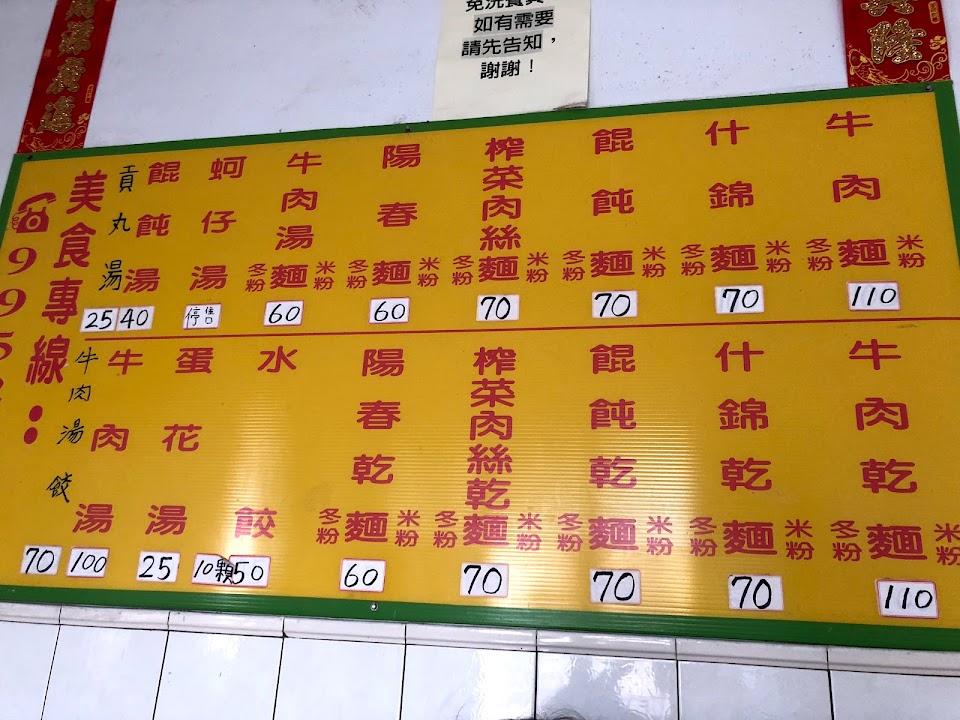 免洗餐具
如有需要
請先告知，
謝謝！
源廣進
隆
牛肉麵 冬粉 米粉 110
什錦麵 冬粉 米粉 70
餛飩麵 冬粉 米粉 70
榨菜肉絲麵 冬粉 米粉 70
陽春麵 冬粉 米粉 60
牛肉湯麵 冬粉 米粉 60
蚵仔湯 停售
餛飩湯 40
貢丸湯 25
牛肉乾麵 冬粉 米粉 110
什錦乾麵 冬粉 米粉 70
餛飩乾麵 冬粉 米粉 70
榨菜肉絲乾麵 冬粉 米粉 70
陽春乾麵 冬粉 米粉 60
水餃 10顆50
蛋花湯 25
牛肉湯 100
牛肉湯餃 70
美食專線：
995